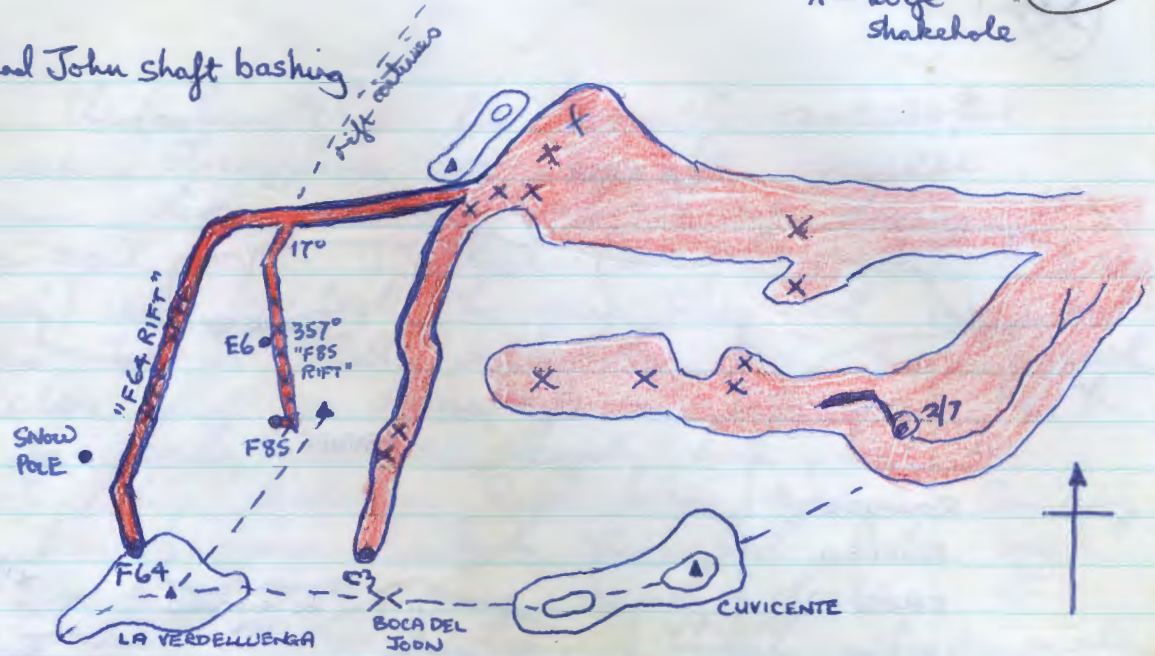 x = huge
shakehole
John shaft bashing
rift continues
17°
"F64 RIFT"
E6
357°
"F85
RIFT"
F85
SNOW
POLE
2/7
F64
LA VERDELLUENGA
BOCA DEL
JOON
CUVICENTE